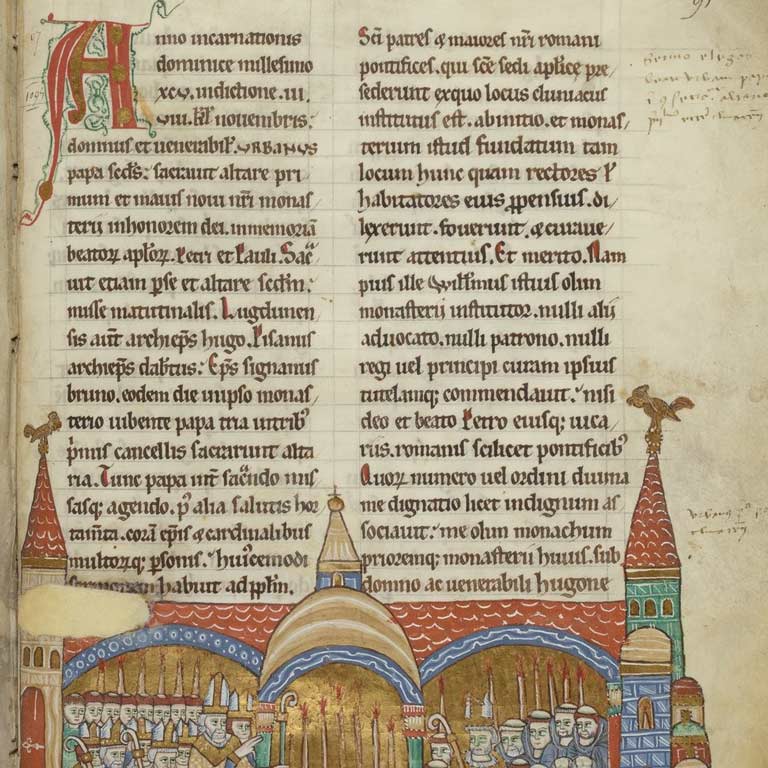 Anno incarnationis
dominice millesimo
xcv. indictione. iii.
viii. kl̄ novembris.
domnus et venerabil'. VRBANVS
papa scđs: sacravit altare pri
mum et maius novi nr̄i monas/
terii inhonorem dei. inmemoriā
beatoꝝ aplōꝝ. Petri et Pauli. Sac̄
vit etiam p̱se et altare scđm.
misse matutinalis. Lugdunen
sis aūt archiep̄s hugo. Pisanus
archiep̄s dab̄tus: Ep̄s signanus
bruno. eodem die inipso monas/
terio iubente papa tria intrib'
p̄mis cancellis sacrarunt alta
ria. Tunc papa int̄ sac̄ndo mis
sasq; agendo. p' alia salutis hor
tam̄ta. corā ep̄is & cardinalibus
multorūq; p̱sonis. huiꝰcemodi
sermonem habuit ad pp̄lm.
Sc̄i patres & maiores nr̄i romani
pontifices. qui sc̄e sedi aplīce pre/
sederunt exquo locus cluniacus
institutus est. abinitio. et monas/
terium istud fundatum tam
locum hunc quam rectores l'
habitatores eius ꝓpensius. di/
lexerunt. foverunt. & curave/
runt attentius. Et merito. Nam
pius ille Willm̄us istius olim
monasterii institutor. nulli alii
advocato. nulli patrono. nulli
regi vel principi curam ipsius
tutelamq; commendavit. nisi
deo et beato Petro eiusq; vica/
riis. romanis scilicet pontificib'
Quorū numero vel ordini divina
me dignatio licet indignum as
sociavit. me olim monachum
prioremq; monasterii huius. sub
domno ac venerabili hugone